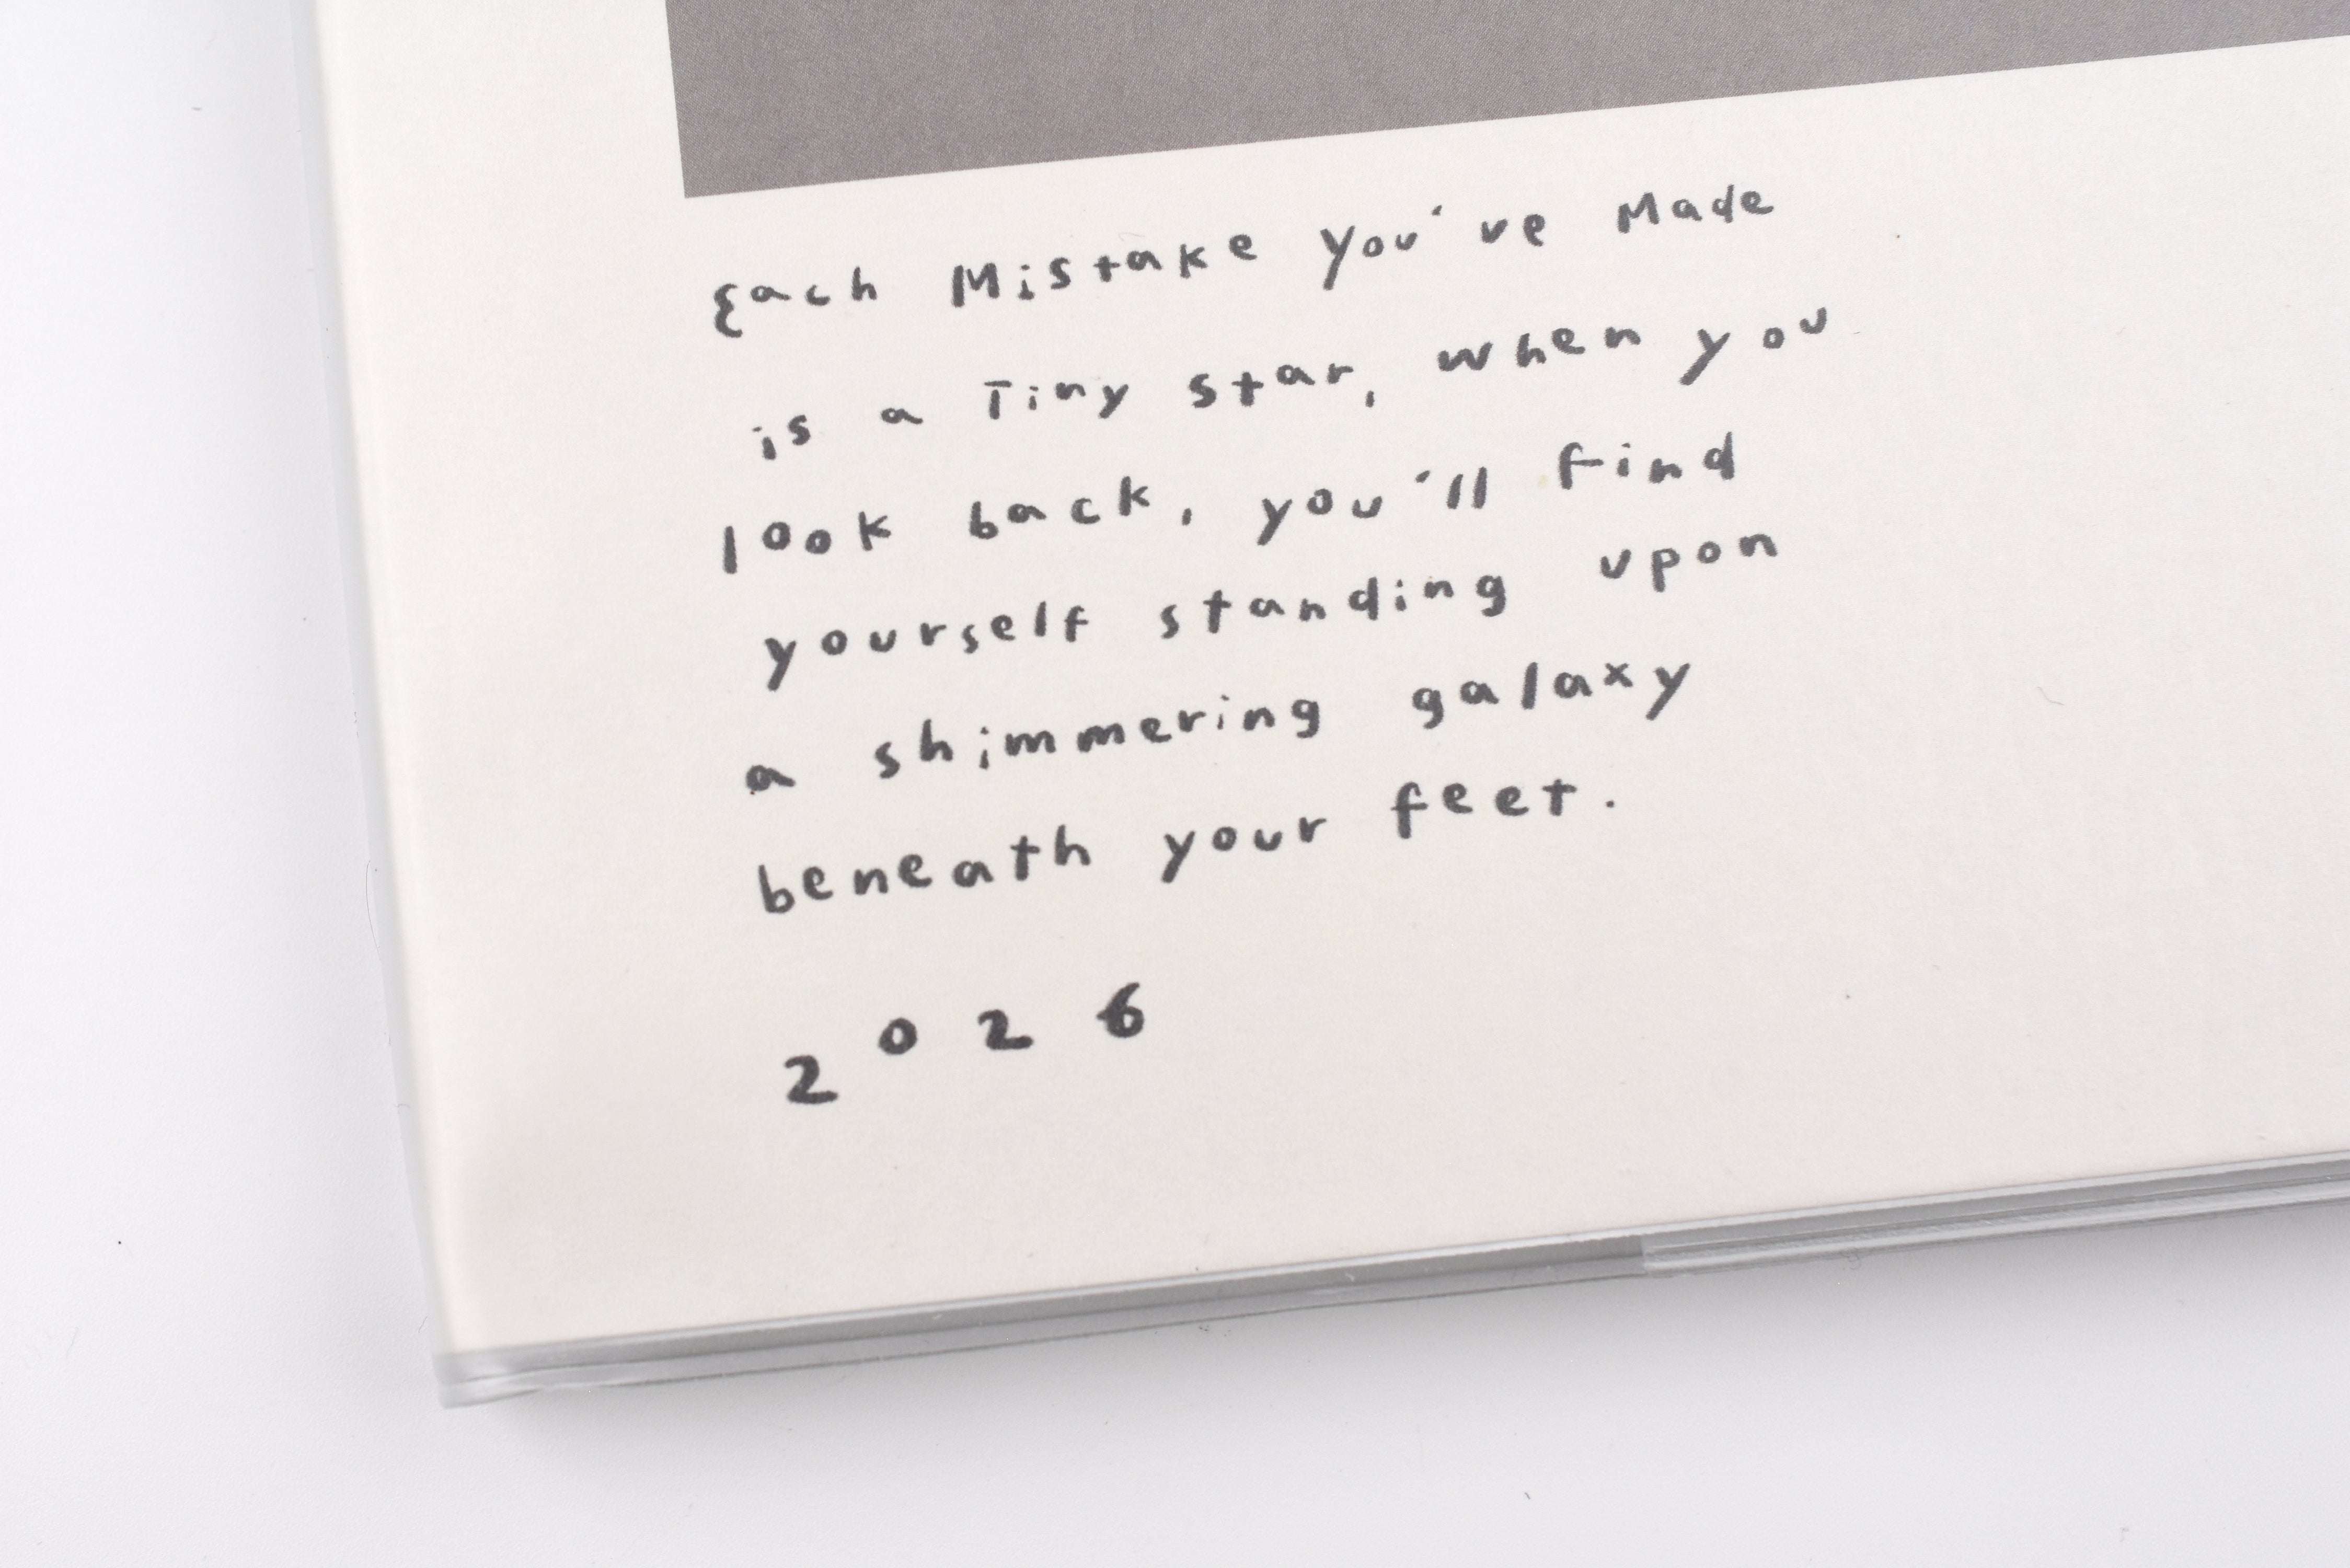 Each Mistake You've Made
is a Tiny star, when you
look back, you'll find
yourself standing upon
a shimmering galaxy
beneath your feet.
2026